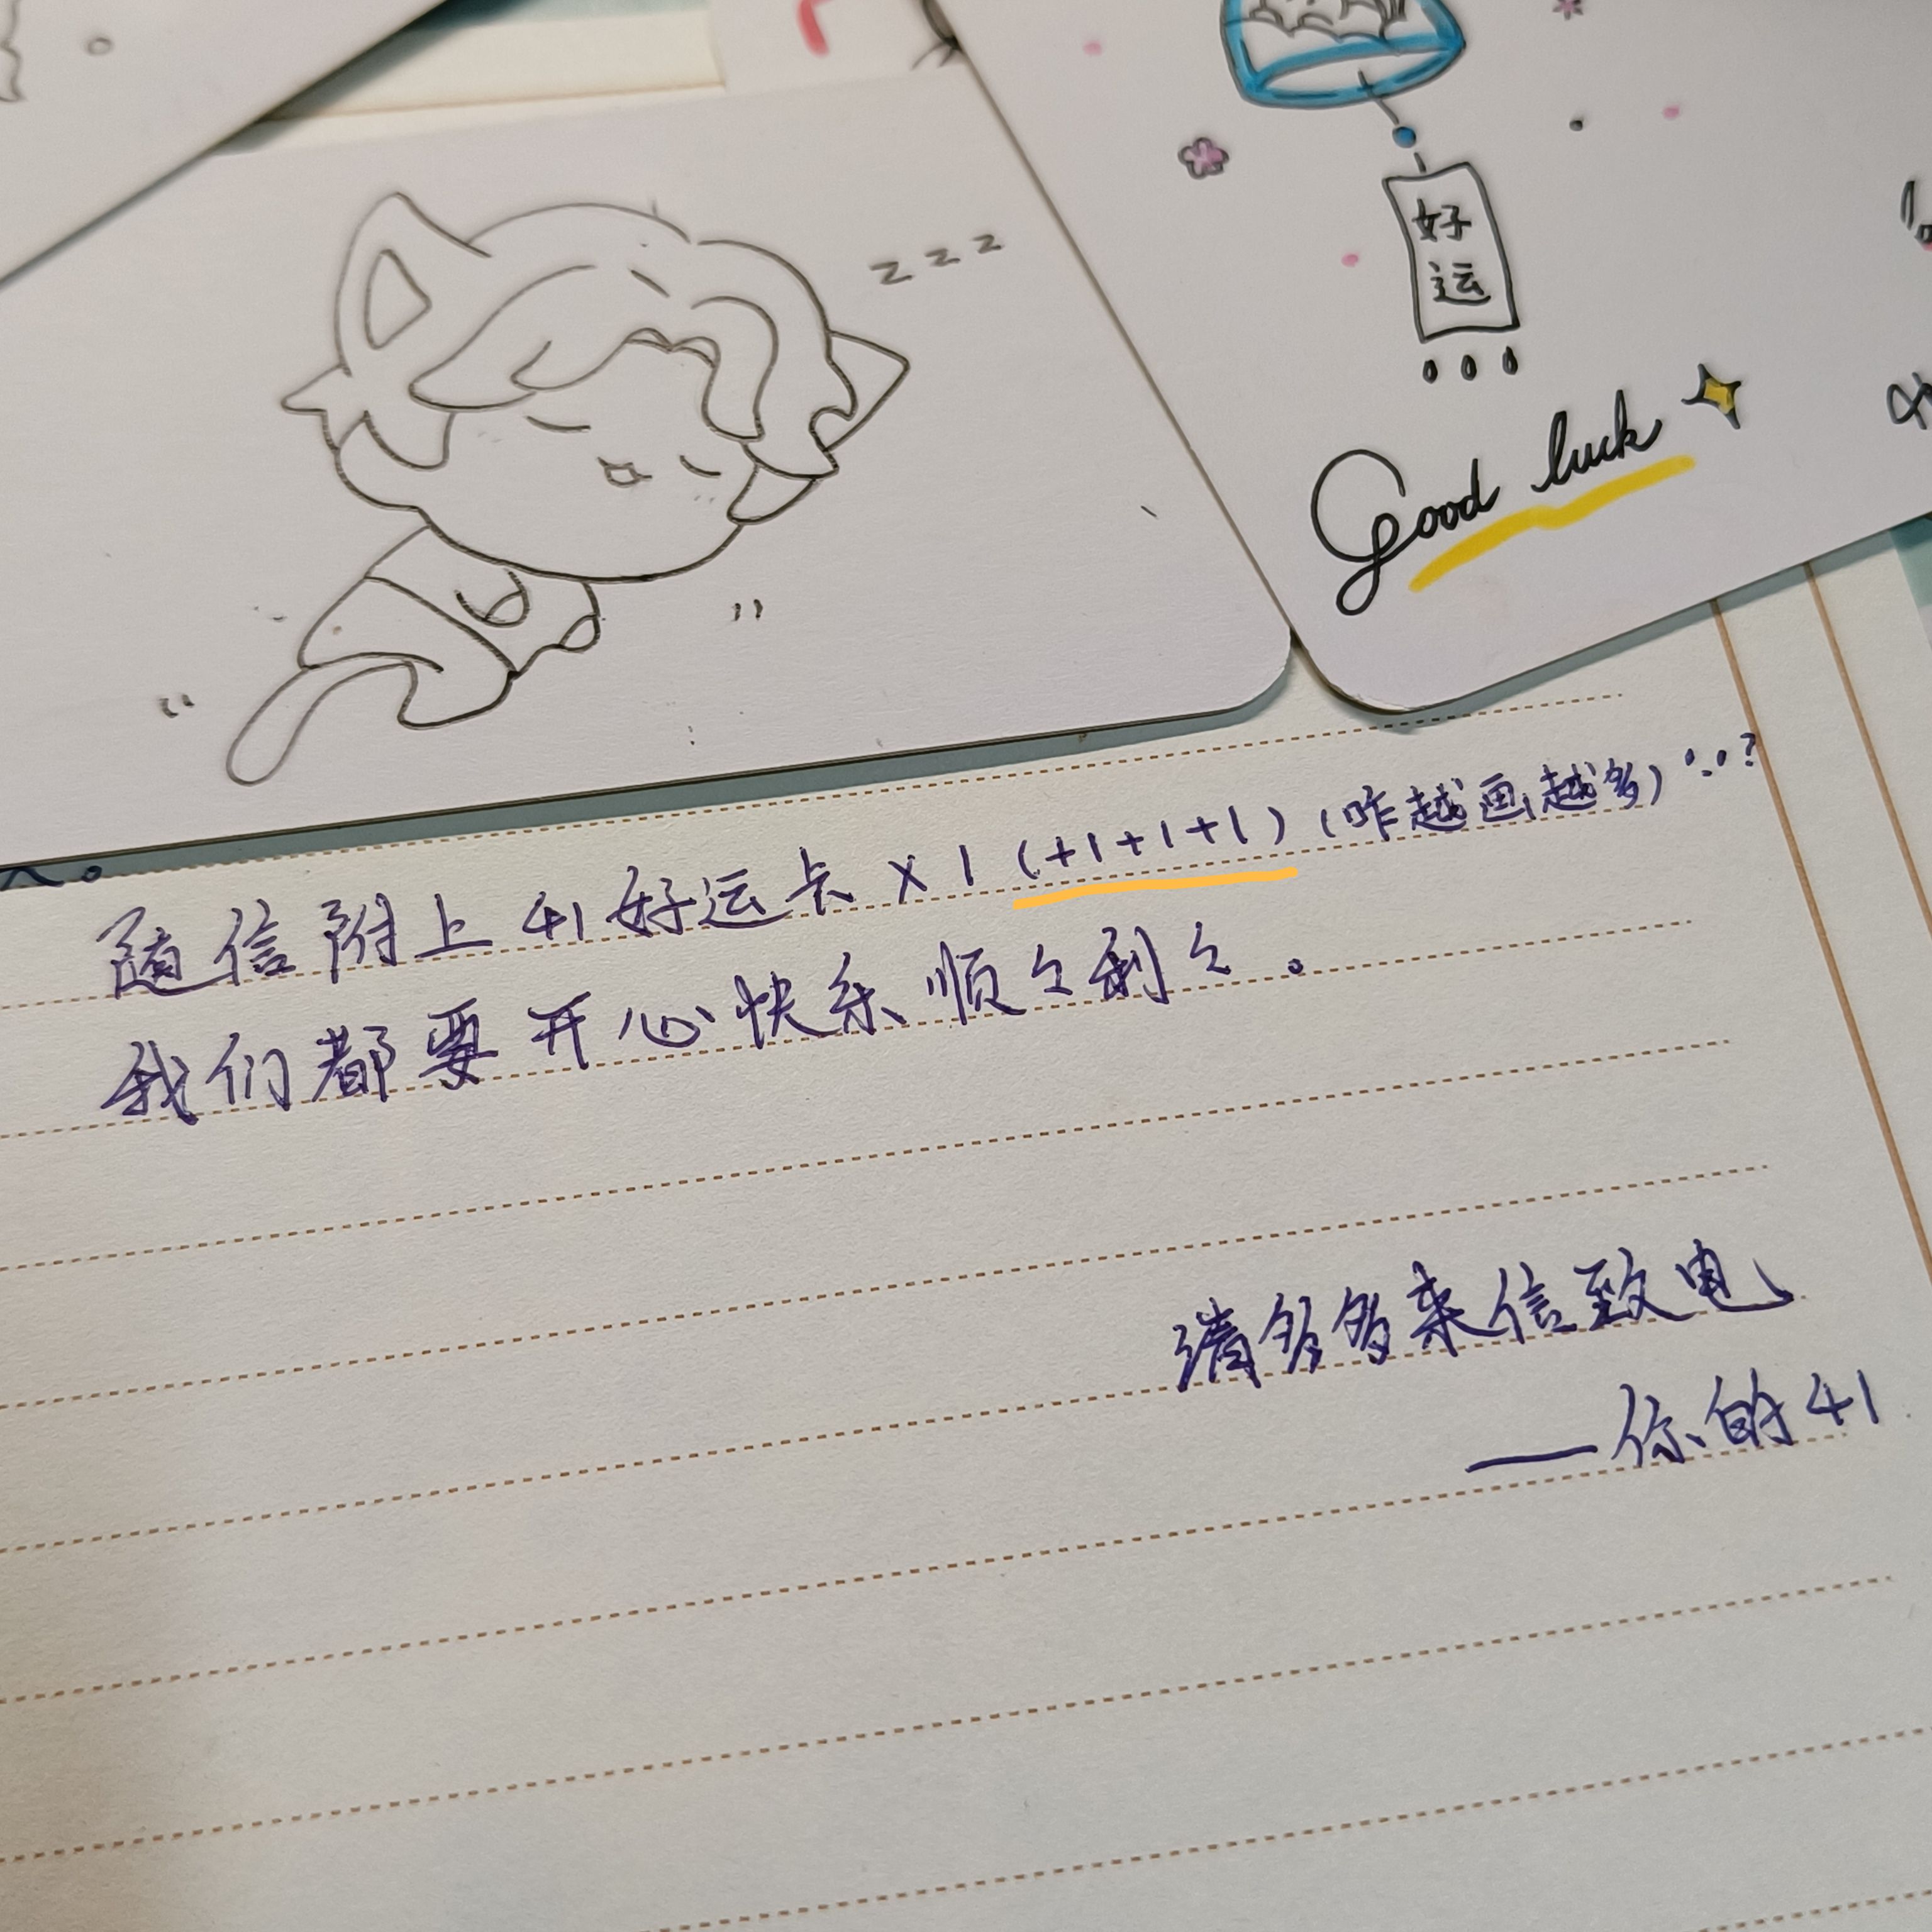 z z z
好
运
Good luck
随信附上41好运卡×1(+1+1+1)(咋越画越多)∵?
我们都要开心快乐顺々利々。
请多多来信致电
——你的41